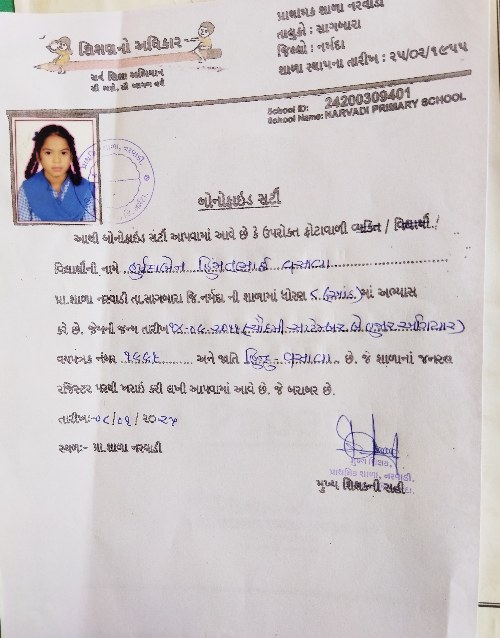 પ્રાથમિક શાળા નરવાડી
તાલુકો : સાગબારા
જિલ્લો : નર્મદા
શાળા સ્થાપના તારીખ : ૨૫/૦૨/૧૯૫૫
શિક્ષણનો અધિકાર
સર્વ શિક્ષા અભિયાન
સૌ ભણે, સૌ આગળ વધે
School ID: 24200309401
School Name: NARVADI PRIMARY SCHOOL
બોનોફાઇડ સર્ટી
આથી બોનોફાઇડ સર્ટી આપવામાં આવે છે કે ઉપરોક્ત ફોટાવાળી વ્યક્તિ / વિદ્યાર્થી /
વિદ્યાર્થીની નામે હિંમતભાઈ વસાવા
પ્રા.શાળા નરવાડી તા.સાગબારા જિ.નર્મદા ની શાળામાં ધોરણ ૮ (આઠ) માં અભ્યાસ
કરે છે. જેમની જન્મ તારીખ (ચૌદમી સપ્ટેમ્બર બે હજાર અગિયાર)
વયપત્રક નંબર ૧૫૬૧ અને જાતિ હિન્દુ - વસાવા છે. જે શાળાનાં જનરલ
રજિસ્ટર પરથી ખરાઇ કરી લખી આપવામાં આવે છે. જે બરાબર છે.
તારીખ:-
સ્થળ:- પ્રા.શાળા નરવાડી
મુખ્ય શિક્ષક,
પ્રાથમિક શાળા, નરવાડી.
મુખ્ય શિક્ષકની સહી